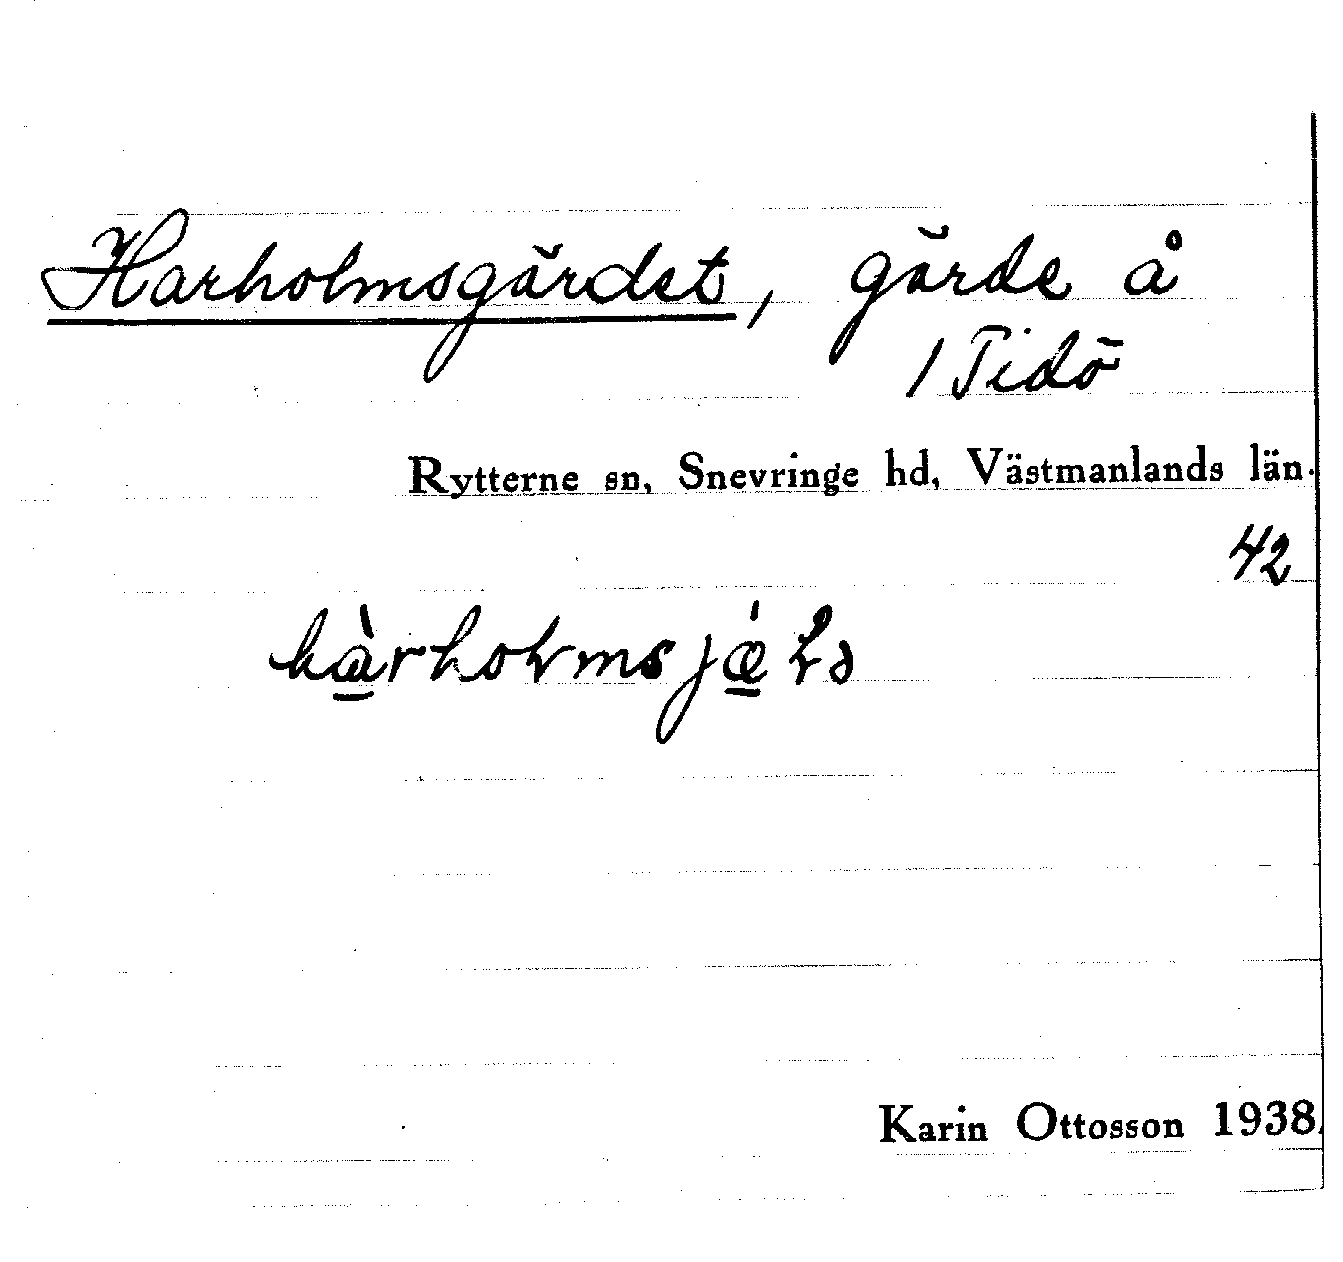 Harholmsgärdet, gärde å
1 Tidö
Rytterne sn, Snevringe hd, Västmanlands län.
42
Karin Ottosson 1938.